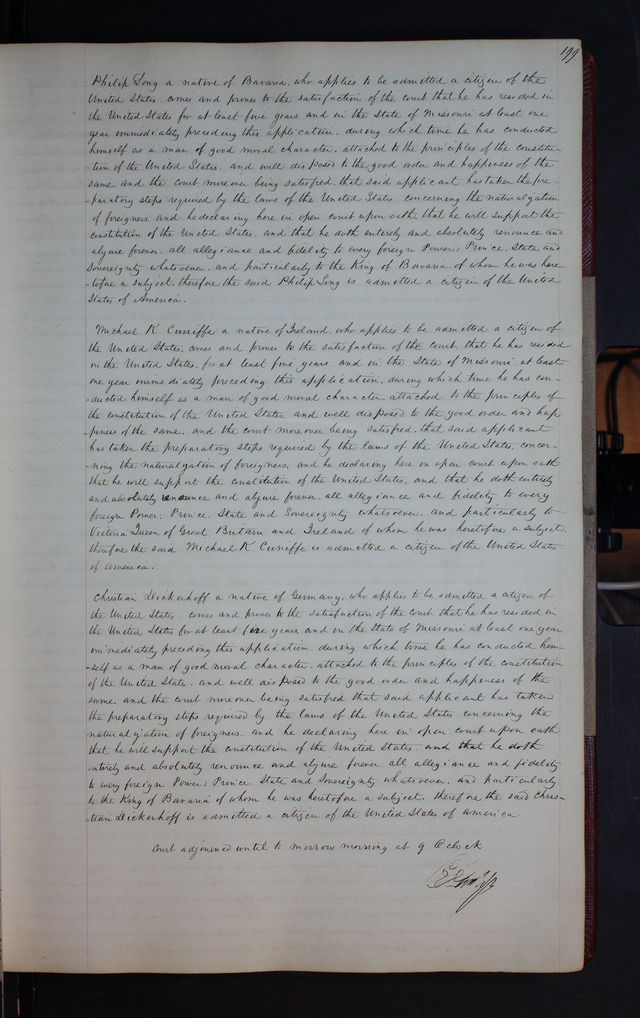 199
Philip Long a native of Bavaria, who applies to be admitted a citizen of the
United States, comes and proves to the satisfaction of the court that he has resided in
the United States for at least five years and in the State of Missouri at least one
year immediately preceding this application, during which time he has conducted
himself as a man of good moral character, attached to the principles of the constitu-
-tion of the United States, and well disposed to the good order and happiness of the
same and the court moreover being satisfied, that said applicant has taken the pre-
-paratory steps required by the laws of the United States, concerning the naturalization
of foreigners, and he declaring here in open court upon oath that he will support the
constitution of the United States, and that he doth entirely and absolutely renounce and
abjure forever, all allegiance and fidelity to every foreign Power, Prince, State and
Sovereignty whatsoever, and particularly to the King of Bavaria of whom he was here-
-tofore a subject, therefore the said Philip Long is admitted a citizen of the United
States of America.
Michael K Cuniffe a native of Ireland, who applies to be admitted a citizen of
the United States, comes and proves to the satisfaction of the court, that he has resided
in the United States, for at least five years, and in the State of Missouri at least
one year immediately preceding this application, during which time he has con-
-ducted himself as a man of good moral character, attached to the principles of
the constitution of the United States, and well disposed to the good order and hap
piness of the same, and the court moreover being satisfied, that said applicant
has taken the preparatory steps required by the laws of the United States, concer-
-ning the naturalization of foreigners, and he declaring here in open court upon oath
that he will support the constitution of the United States, and that he doth entirely
and absolutely renounce and abjure forever, all allegiance and fidelity to every
foreign Power, Prince, State and Sovereignty whatsoever, and particularly to
Victoria Queen of Great Britain and Ireland of whom he was heretofore a subject,
therefore the said Michael K Cuniffe is admitted a citizen of the United States
of America.
Christian Dickerhoff a native of Germany, who applies to be admitted a citizen of
the United States, comes and proves to the satisfaction of the court that he has resided in
the United States for at least five years, and in the State of Missouri at least one year
immediately preceding this application, during which time he has conducted him-
-self as a man of good moral character, attached to the principles of the constitution
of the United State, and well disposed to the good order and happiness of the
same, and the court moreover being satisfied that said applicant has taken
the preparatory steps required by the laws of the United States concerning the
naturalization of foreigners, and he declaring here in open court upon oath
that he will support the constitution of the United States, and that he doth
entirely and absolutely renounce and abjure forever all allegiance and fidelity
to every foreign Power, Prince State and Sovereignty whatsoever, and particularly
to the King of Bavaria of whom he was heretofore a subject, therefore the said Chris-
-tian Dickerhoff is admitted a citizen of the United States of America.
Court adjourned until to morrow morning at 9 O clock